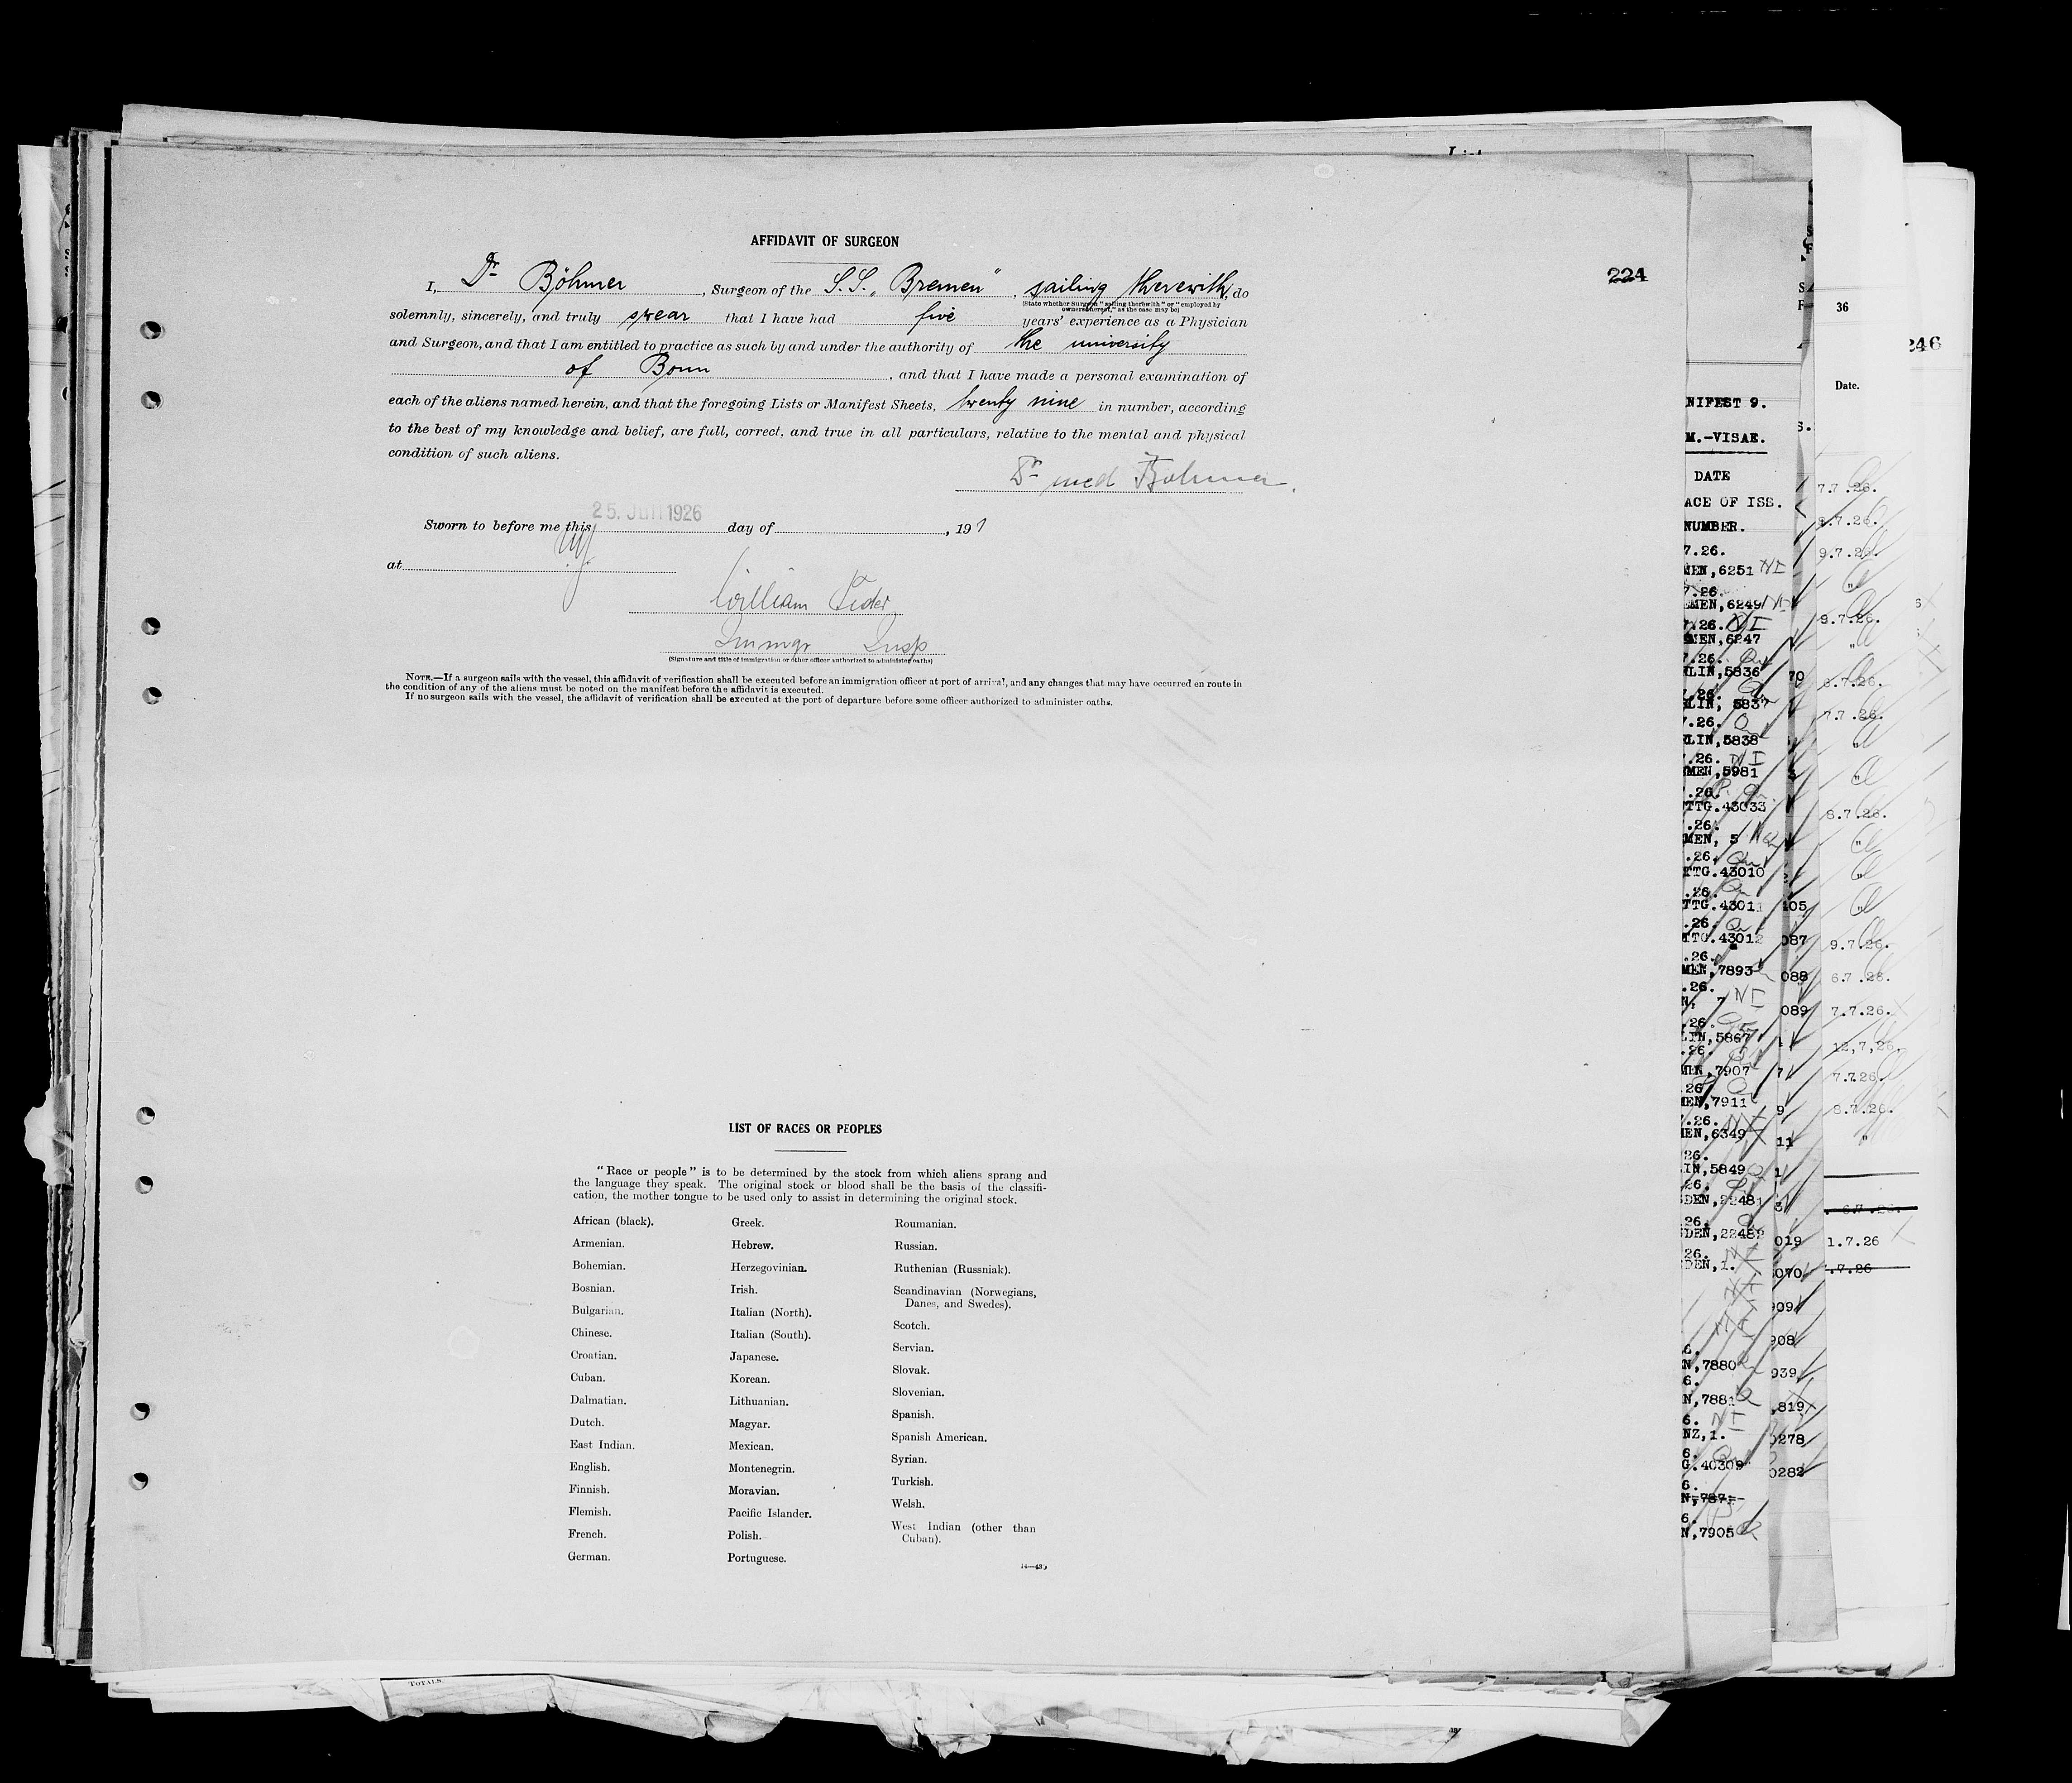 AFFIDAVIT OF SURGEON
224
I, Dr Böhmer, Surgeon of the S.S. „Bremen", sailing therewith, do
(State whether Surgeon "sailing therewith" or "employed by
owners thereof," as the case may be)
solemnly, sincerely, and truly swear that I have had five years' experience as a Physician
and Surgeon, and that I am entitled to practice as such by and under the authority of the university
of Bonn, and that I have made a personal examination of
each of the aliens named herein, and that the foregoing Lists or Manifest Sheets, twenty nine in number, according
to the best of my knowledge and belief, are full, correct, and true in all particulars, relative to the mental and physical
condition of such aliens.
Dr med Böhmer.
25. Juli 1926
Sworn to before me this day of , 191
at
William Fider
Immgr Insp
(Signature and title of immigration or other officer authorized to administer oaths)
NOTE.—If a surgeon sails with the vessel, this affidavit of verification shall be executed before an immigration officer at port of arrival, and any changes that may have occurred en route in
the condition of any of the aliens must be noted on the manifest before the affidavit is executed.
If no surgeon sails with the vessel, the affidavit of verification shall be executed at the port of departure before some officer authorized to administer oaths.
LIST OF RACES OR PEOPLES
"Race or people" is to be determined by the stock from which aliens sprang and
the language they speak. The original stock or blood shall be the basis of the classifi-
cation, the mother tongue to be used only to assist in determining the original stock.
African (black).
Armenian.
Bohemian.
Bosnian.
Bulgarian.
Chinese.
Croatian.
Cuban.
Dalmatian.
Dutch.
East Indian.
English.
Finnish.
Flemish.
French.
German.
Greek.
Hebrew.
Herzegovinian.
Irish.
Italian (North).
Italian (South).
Japanese.
Korean.
Lithuanian.
Magyar.
Mexican.
Montenegrin.
Moravian.
Pacific Islander.
Polish.
Portuguese.
Roumanian.
Russian.
Ruthenian (Russniak).
Scandinavian (Norwegians,
Danes, and Swedes).
Scotch.
Servian.
Slovak.
Slovenian.
Spanish.
Spanish American.
Syrian.
Turkish.
Welsh.
West Indian (other than
Cuban).
TOTALS.
NIFEST 9.
M.-VISAE.
DATE
ACE OF ISS.
NUMBER.
7.26.
MEN,6251 NI
7.26.
EMEN,6249
7.26. NI
MEN,6247
7.26.
LIN,5836
7.26.
LIN, 5837
7.26.
LIN,5838
.26. NI
MEN,5981
.26.
TTG.43033
.26.
MEN, 5
.26.
TTG.43010
.26.
TTG.43011
.26.
TTG.43012
.26.
MEN,7893
.26.
NI
.26.
LIN,5867
.26.
MEN,7907
.26
MEN,7911
.26.
MEN,6349
26.
IN,5849
26.
DEN,22481
26.
DEN,22482
26.
DEN,1.
N,7880
6.
N,7881
6. NI
NZ,1.
6.
G.40309
6.
6.
N,7905
70
405
087
088
089
11
019
070
909
908
939
,819
0278
0282
36
246
Date.
7.7.26.
8.7.26.
9.7.26.
"
9.7.26.
"
6.7.26.
7.7.26.
"
"
8.7.26.
"
"
"
9.7.26.
6.7.26.
7.7.26.
12,7,26.
7.7.26.
8.7.26.
"
6.7.26.
1.7.26
.7.26